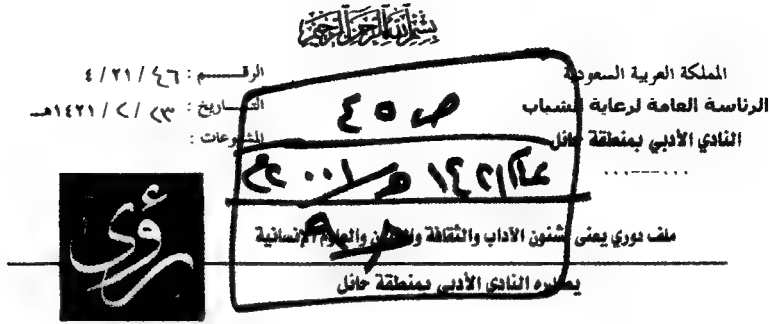 بسم الله الرحمن الرحيم
المملكة العربية السعودية
الرئاسة العامة لرعاية الشباب
النادي الأدبي بمنطقة حائل
الرقـــم : ٤٦ / ٢١ / ٤
التـــاريخ : ٢٣ / ٢ / ١٤٢١هـ
المشفوعات :
ص ٤٥
١٤٢١هـ / ٢٠٠١م
رؤى
ملف دوري يعنى بشئون الآداب والثقافة والفنون والعلوم الإنسانية
يصدره النادي الأدبي بمنطقة حائل